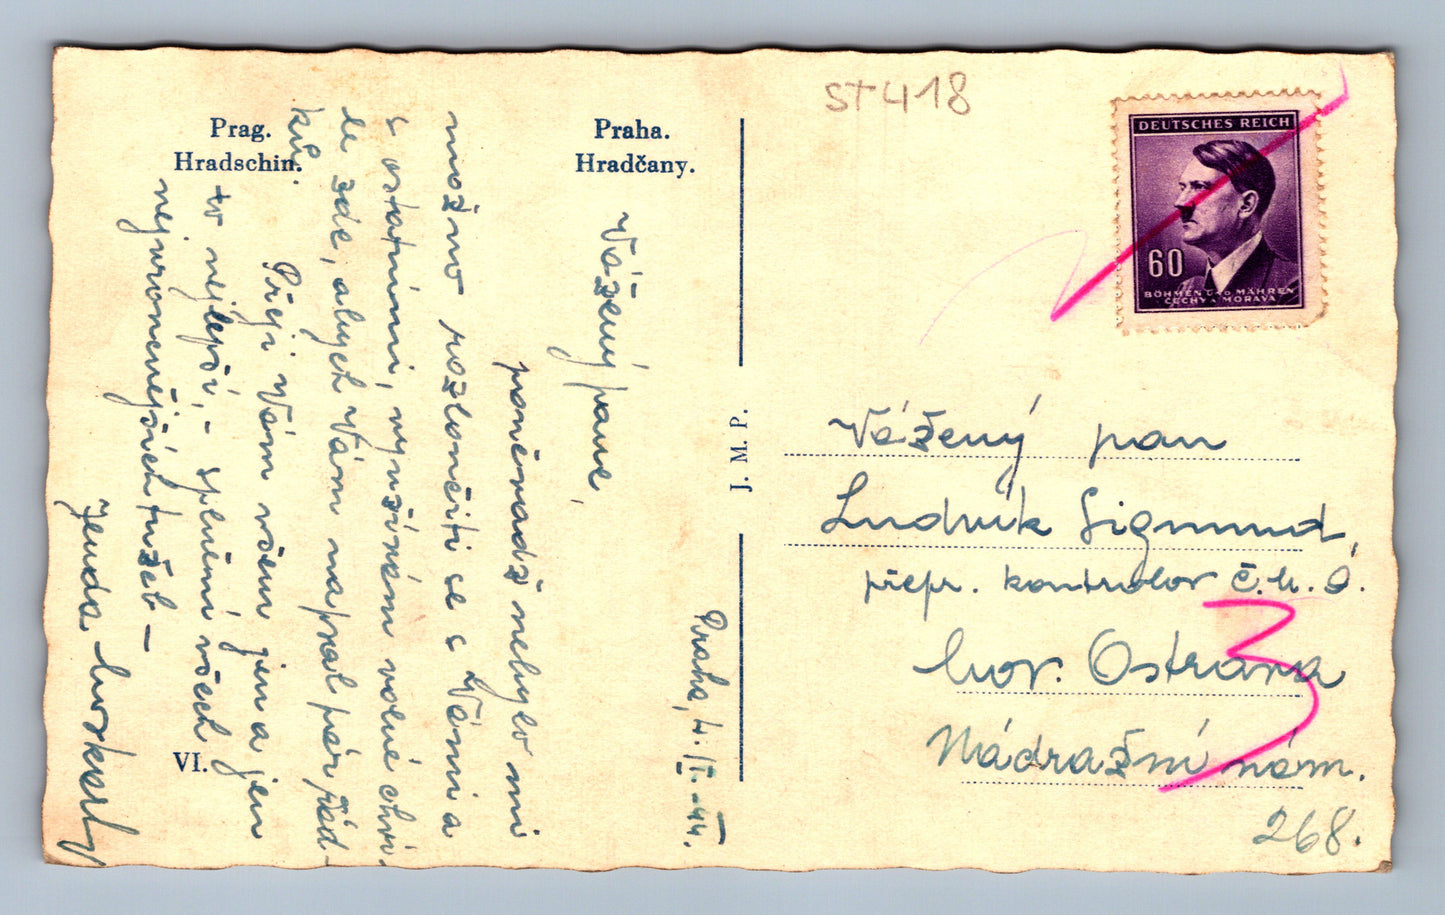 ST418
Prag.
Hradschin.
Praha.
Hradčany.
DEUTSCHES REICH
60
BÖHMEN UND MÄHREN
ČECHY A MORAVA
J. M. P.
VI.
Praha, 4./I.-44.
Vážený pane,
poněvadž nebylo mi
možno rozloučiti se s Vámi a
s ostatními, využívám volné chví-
le zde, abych Vám napsal pár řád-
ků.
Přeji Vám všem jen a jen
to nejlepší, - splnění všech
nejvroucnějších tužeb -
Jenda
Vážený pan
Ludvík Sigmund,
přepr. kontrolor č.
Mor. Ostrava
3
Nádražní nám.
268.